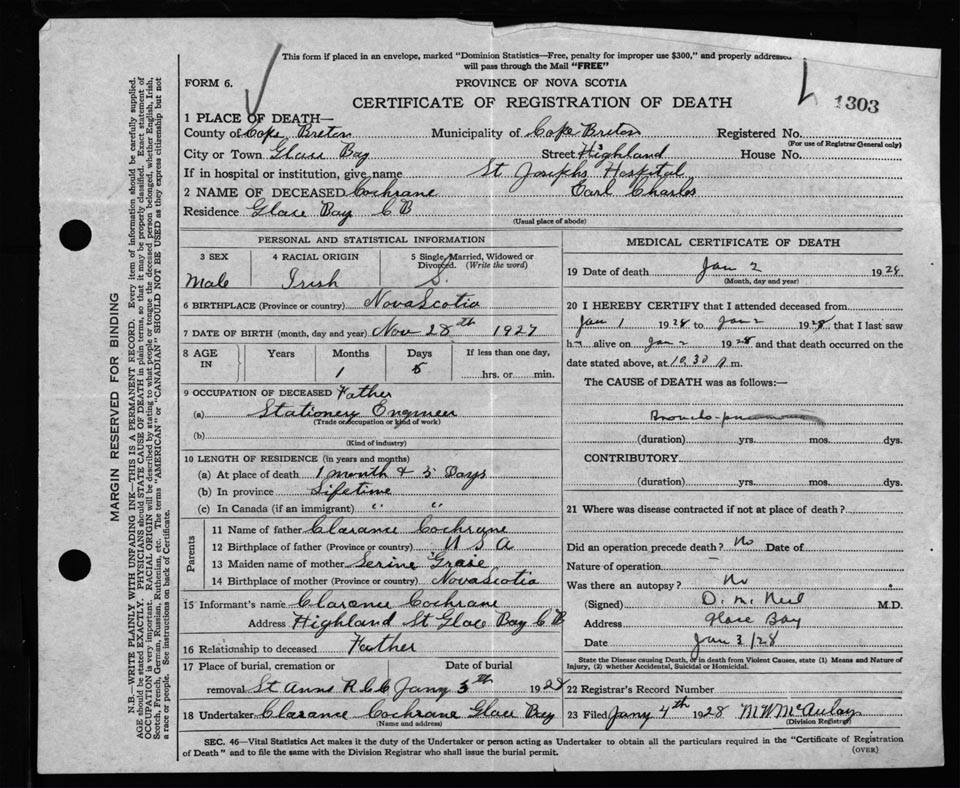 This form if placed in an envelope, marked "Dominion Statistics—Free, penalty for improper use $300," and properly addressed
will pass through the Mail "FREE"
FORM 6. PROVINCE OF NOVA SCOTIA
CERTIFICATE OF REGISTRATION OF DEATH 1303
1 PLACE OF DEATH—
County of Cape Breton Municipality of Cape Breton Registered No.
(For use of Registrar General only)
City or Town Glace Bay Street Highland House No.
If in hospital or institution, give name St Josephs Hospital
2 NAME OF DECEASED Cochrane Earl Charles
Residence Glace Bay C B
(Usual place of abode)
PERSONAL AND STATISTICAL INFORMATION
3 SEX 4 RACIAL ORIGIN 5 Single, Married, Widowed or
Divorced. (Write the word)
Male Irish S.
6 BIRTHPLACE (Province or country) Nova Scotia
7 DATE OF BIRTH (month, day and year) Nov 28th 1927
8 AGE IN Years Months Days If less than one day,
1 5 hrs. or min.
9 OCCUPATION OF DECEASED Father
(a) Stationery Engineer
(Trade or occupation or kind of work)
(b)
(Kind of industry)
10 LENGTH OF RESIDENCE (in years and months)
(a) At place of death 1 month & 5 Days
(b) In province Lifetime
(c) In Canada (if an immigrant) " "
Parents
11 Name of father Clarance Cochrane
12 Birthplace of father (Province or country) U S A
13 Maiden name of mother
14 Birthplace of mother (Province or country) Nova Scotia
15 Informant's name Clarence Cochrane
Address Highland St Glace Bay C B
16 Relationship to deceased Father
17 Place of burial, cremation or Date of burial
removal St Anns R C C Jany 3th 1928
18 Undertaker Clarance Cochrane Glace Bay
(Name and address)
MEDICAL CERTIFICATE OF DEATH
19 Date of death Jan 2 1928
(Month, day and year)
20 I HEREBY CERTIFY that I attended deceased from
Jan 1 1928 to Jan 2 1928, that I last saw
h alive on Jan 2 1928 and that death occurred on the
date stated above, at 10.30 m.
The CAUSE OF DEATH was as follows:—
Broncho-pneumonia
(duration) yrs. mos. dys.
CONTRIBUTORY
(duration) yrs. mos. dys.
21 Where was disease contracted if not at place of death?
Did an operation precede death? No Date of
Nature of operation
Was there an autopsy? No
(Signed) M.D.
Address Glace Bay
Date Jan 3/28
State the Disease causing Death, or in death from Violent Causes, state (1) Means and Nature of
Injury, (2) whether Accidental, Suicidal or Homicidal.
22 Registrar's Record Number
23 Filed Jany 4th 1928 M W McAulay
(Division Registrar)
SEC. 46—Vital Statistics Act makes it the duty of the Undertaker or person acting as Undertaker to obtain all the particulars required in the "Certificate of Registration
of Death" and to file the same with the Division Registrar who shall issue the burial permit. (OVER)
MARGIN RESERVED FOR BINDING
N.B.—WRITE PLAINLY, WITH UNFADING INK—THIS IS A PERMANENT RECORD. Every item of information should be carefully supplied.
AGE should be stated EXACTLY. PHYSICIANS should STATE CAUSE OF DEATH in plain terms, so that it may be properly classified. Exact statement of
OCCUPATION is very important. RACIAL ORIGIN will be described by stating to what people or tongue the deceased person belonged, whether English, Irish,
Scotch, French, German, Russian, Ruthenian, etc. The terms "AMERICAN" or "CANADIAN" SHOULD NOT BE USED as they express citizenship but not
a race or people. See instructions on back of Certificate.